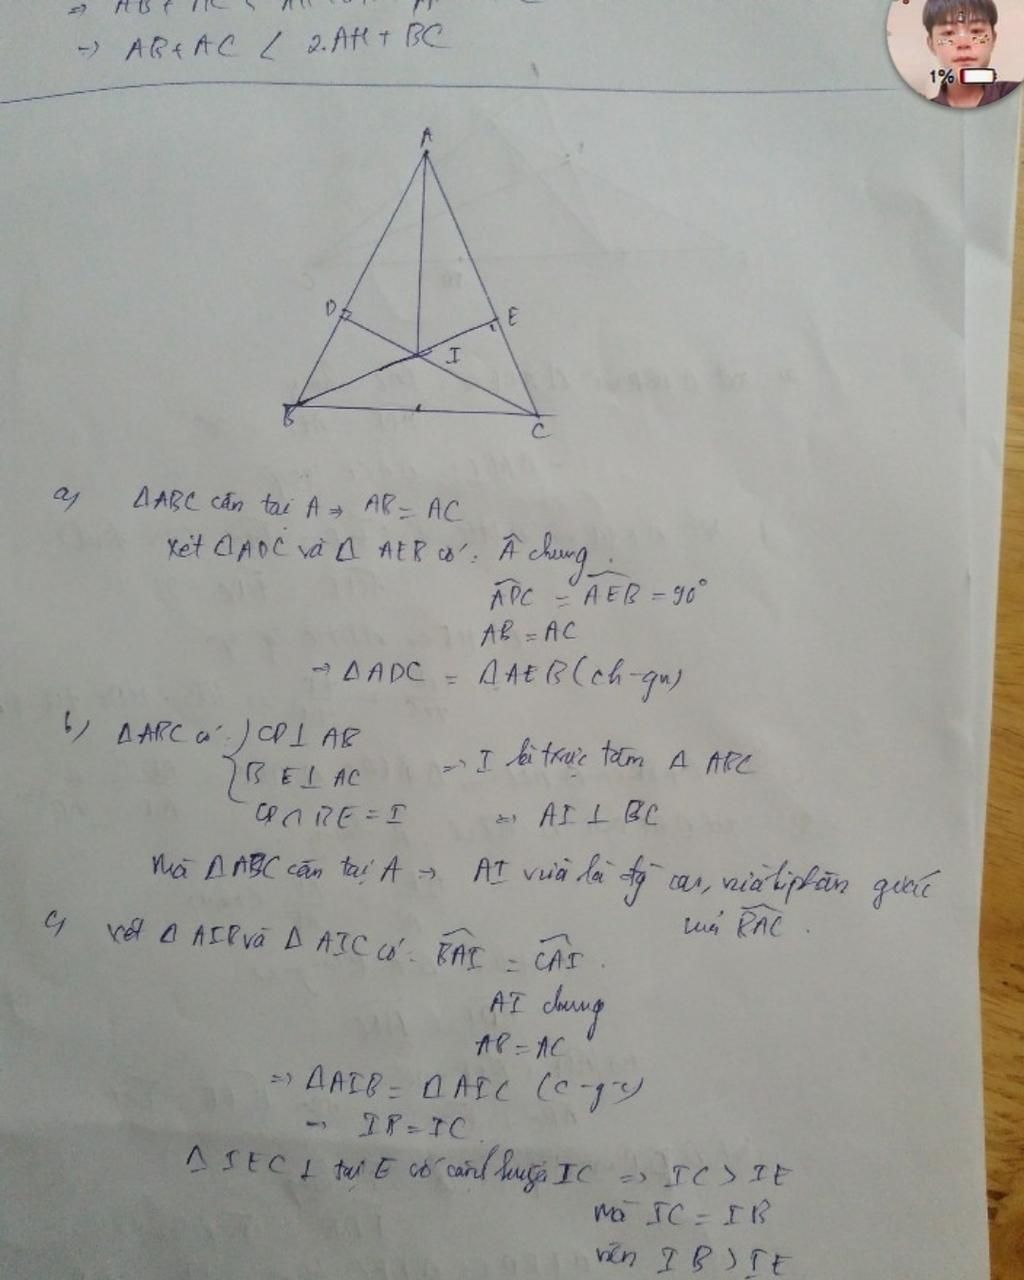 ⇒ AB + AC <
→ AB + AC < 2.AH + BC
1%
A
D
E
I
B
C
a) ΔABC cân tại A ⇒ AB = AC
Xét ΔADC và Δ AEB có: Â chung.
ADC = AEB = 90°
AB = AC
⇒ ΔADC = ΔAEB (ch-gn)
b) ΔABC có: CD ⊥ AB
BE ⊥ AC ⇒ I là trực tâm Δ ABC
CD ∩ BE = I ⇒ AI ⊥ BC
mà ΔABC cân tại A ⇒ AI vừa là đg cao, vừa là phân giác
của BAC.
c) xét Δ AIB và Δ AIC có: BAI = CAI.
AI chung
AB = AC
⇒ ΔAIB = ΔAIC (c-g-c)
→ IB = IC
Δ IEC ⊥ tại E có cạnh huyền IC ⇒ IC > IE
mà IC = IB
nên IB > IE